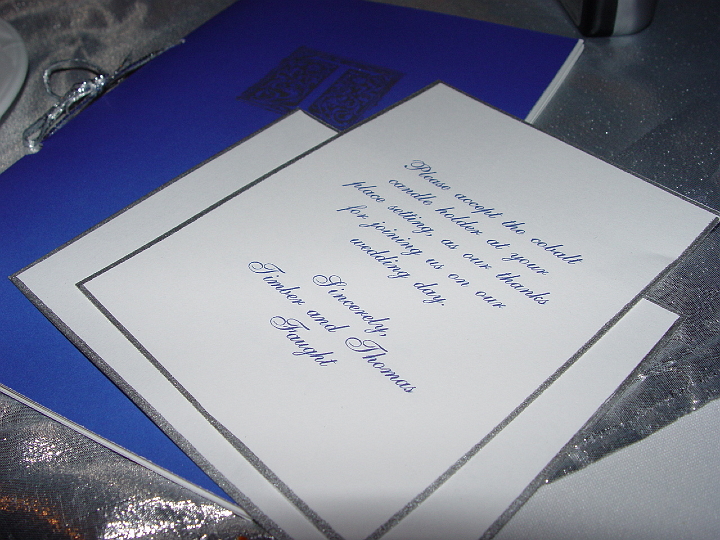 Please accept the cobalt
candle holder at your
place setting, as our thanks
for joining us on our
wedding day.
Sincerely,
Timber and Thomas
Faught